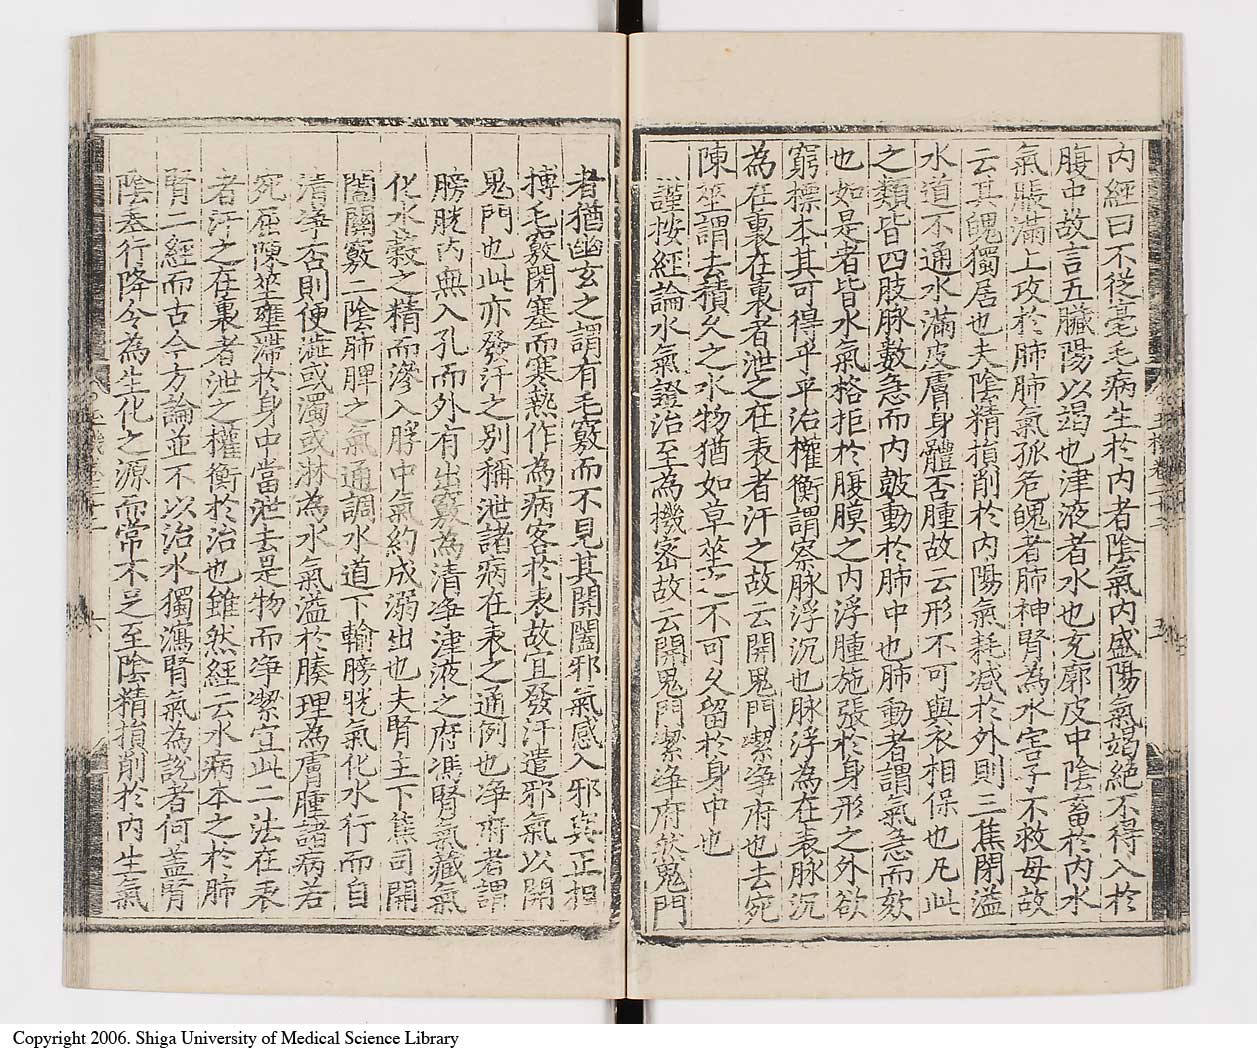 內經曰不從毫毛病生於內者陰氣內盛陽氣竭絕不得入於
腹中故言五臟陽以竭也津液者水也充廓皮中陰畜於內水
氣脹滿上攻於肺肺氣孤危魄者肺神腎為水害子不救母故
云其魄獨居也夫陰精損削於內陽氣耗减於外則三焦閉溢
水道不通水滿皮膚身體否腫故云形不可與衣相保也凡此
之類皆四肢脉數急而內鼓動於肺中也肺動者謂氣急而欬
也如是者皆水氣格拒於腹膜之內浮腫施張於身形之外欲
窮標本其可得乎平治權衡謂察脉浮沉也脉浮為在表脉沉
為在裏在裏者泄之在表者汗之故云開鬼門潔淨府也去宛
陳莝謂去積久之水物猶如草莝之不可久留於身中也
謹按經論水氣證治至為機密故云開鬼門潔淨府然鬼門
者猶幽玄之謂有毛竅而不見其開闔邪氣感入邪與正相
搏毛竅閉塞而寒熱作為病客於表故宜發汗遣邪氣以開
鬼門也此亦發汗之別稱泄諸病在表之通例也淨府者謂
膀胱內無入孔而外有出竅為清淨津液之府馮腎氣藏氣
化水穀之精而滲入脬中氣約成溺出也夫腎主下焦司開
闔關竅二陰肺脾之氣通調水道下輸膀胱氣化水行而自
清淨否則便澁或濁或淋為水氣溢於腠理為膚腫諸病若
宛在陳莝壅滯於身中當泄去是物而淨潔宜此二法在表
者汗之在裏者泄之權衡於治也雖然經云水病本之於肺
腎二經而古今方論並不以治水獨瀉腎氣為說者何蓋腎
陰奉行降令為生化之源而常不足至陰精損削於內生氣
Copyright 2006. Shiga University of Medical Science Library